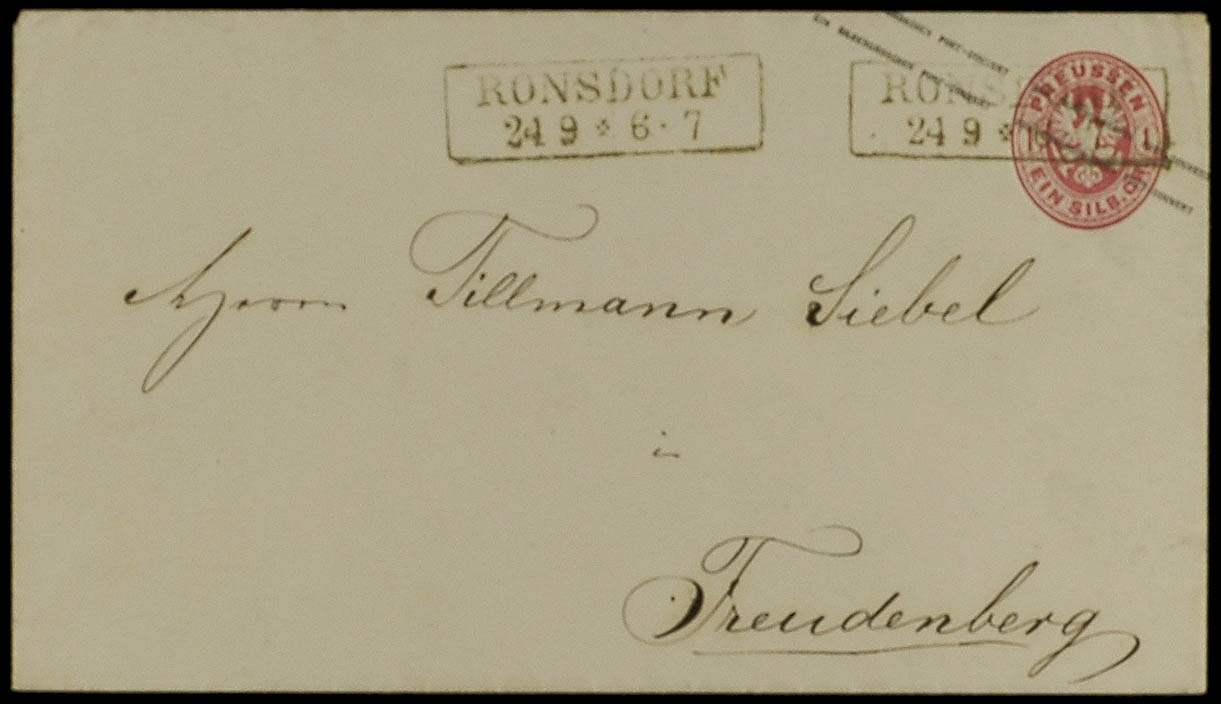 RONSDORF
24 9 * 6 - 7
24 9 *
PREUSSEN
1 EIN SILB. GR. 1
Herrn Tillmann Siebel
in
Freudenberg